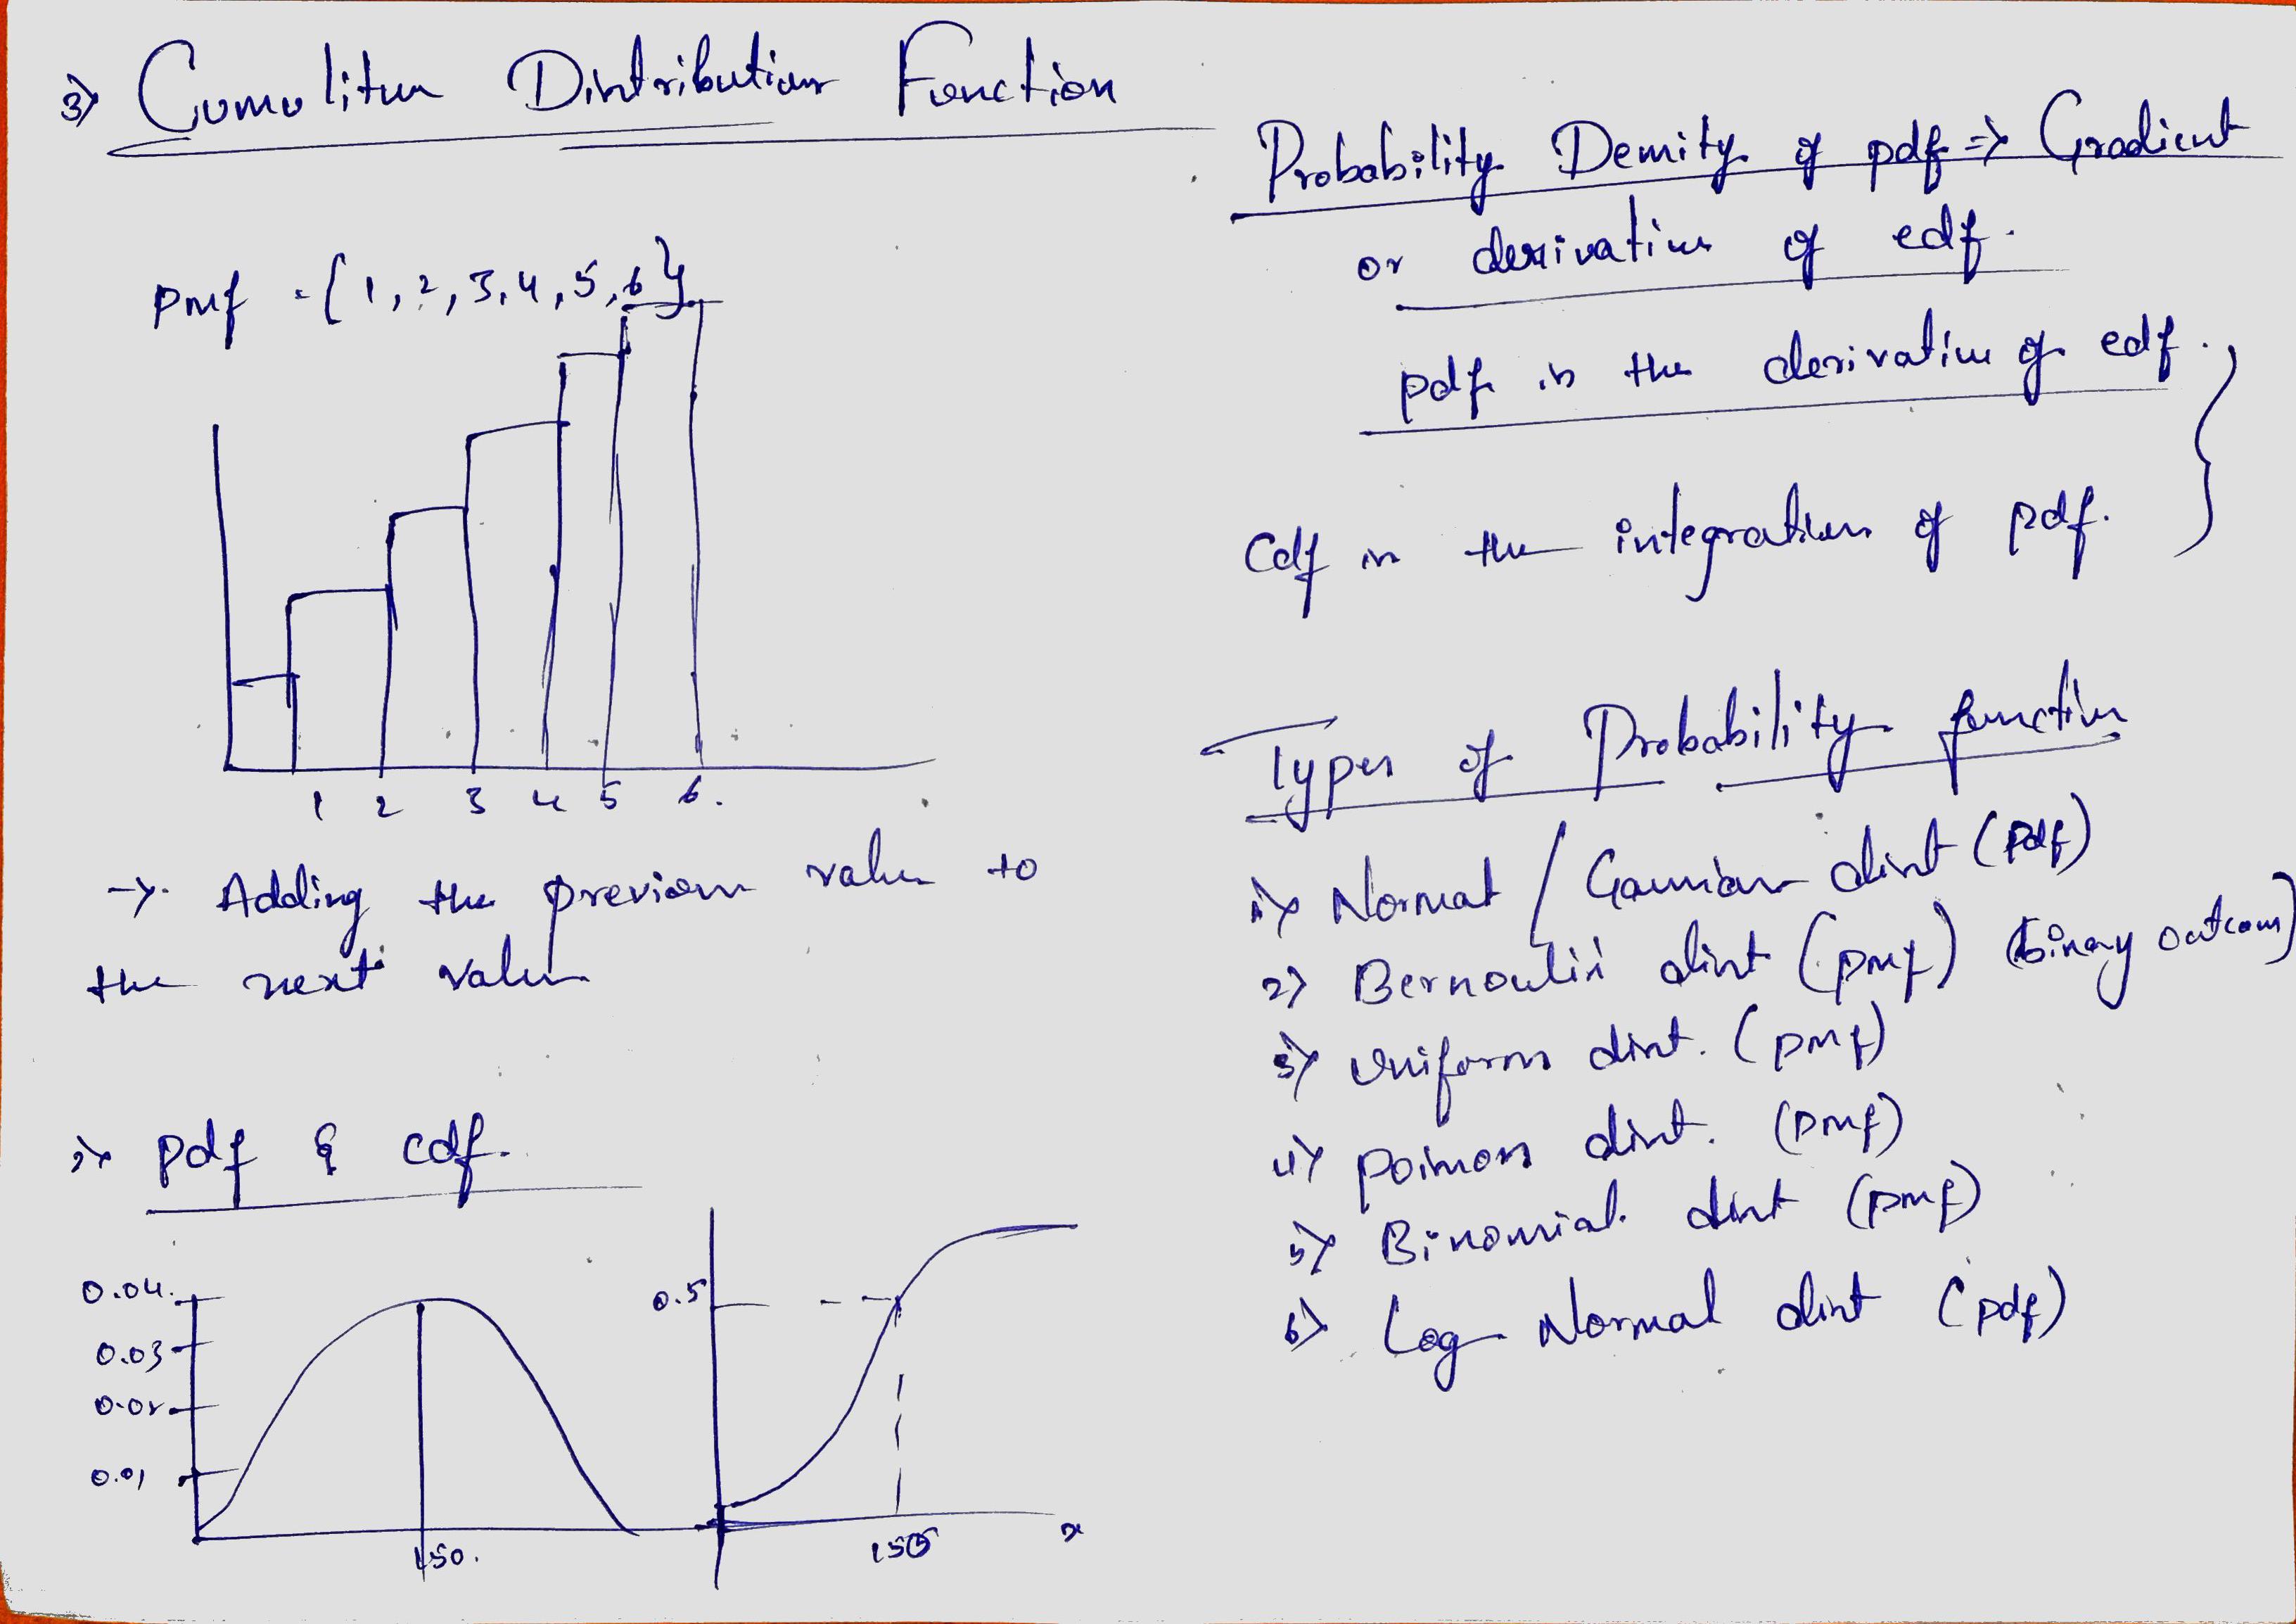 3) Cumulitive Distribution Function
pmf = {1, 2, 3, 4, 5, 6}
1 2 3 4 5 6.
→ Adding the previous value to
the next value
pdf & cdf.
0.04.
0.03
0.02
0.01
150.
0.5
150
x
Probability Density of pdf ⇒ Gradient
or derivative of cdf.
pdf is the derivative of cdf.
Cdf is the integration of pdf.
Types of Probability function
1) Normal / Gaussian dist (pdf)
2) Bernoulli dist (pmf) (binary outcom)
3) Uniform dist. (pmf)
4) Poisson dist. (pmf)
5) Binomial. dist (pmf)
6) Log Normal dist (pdf)